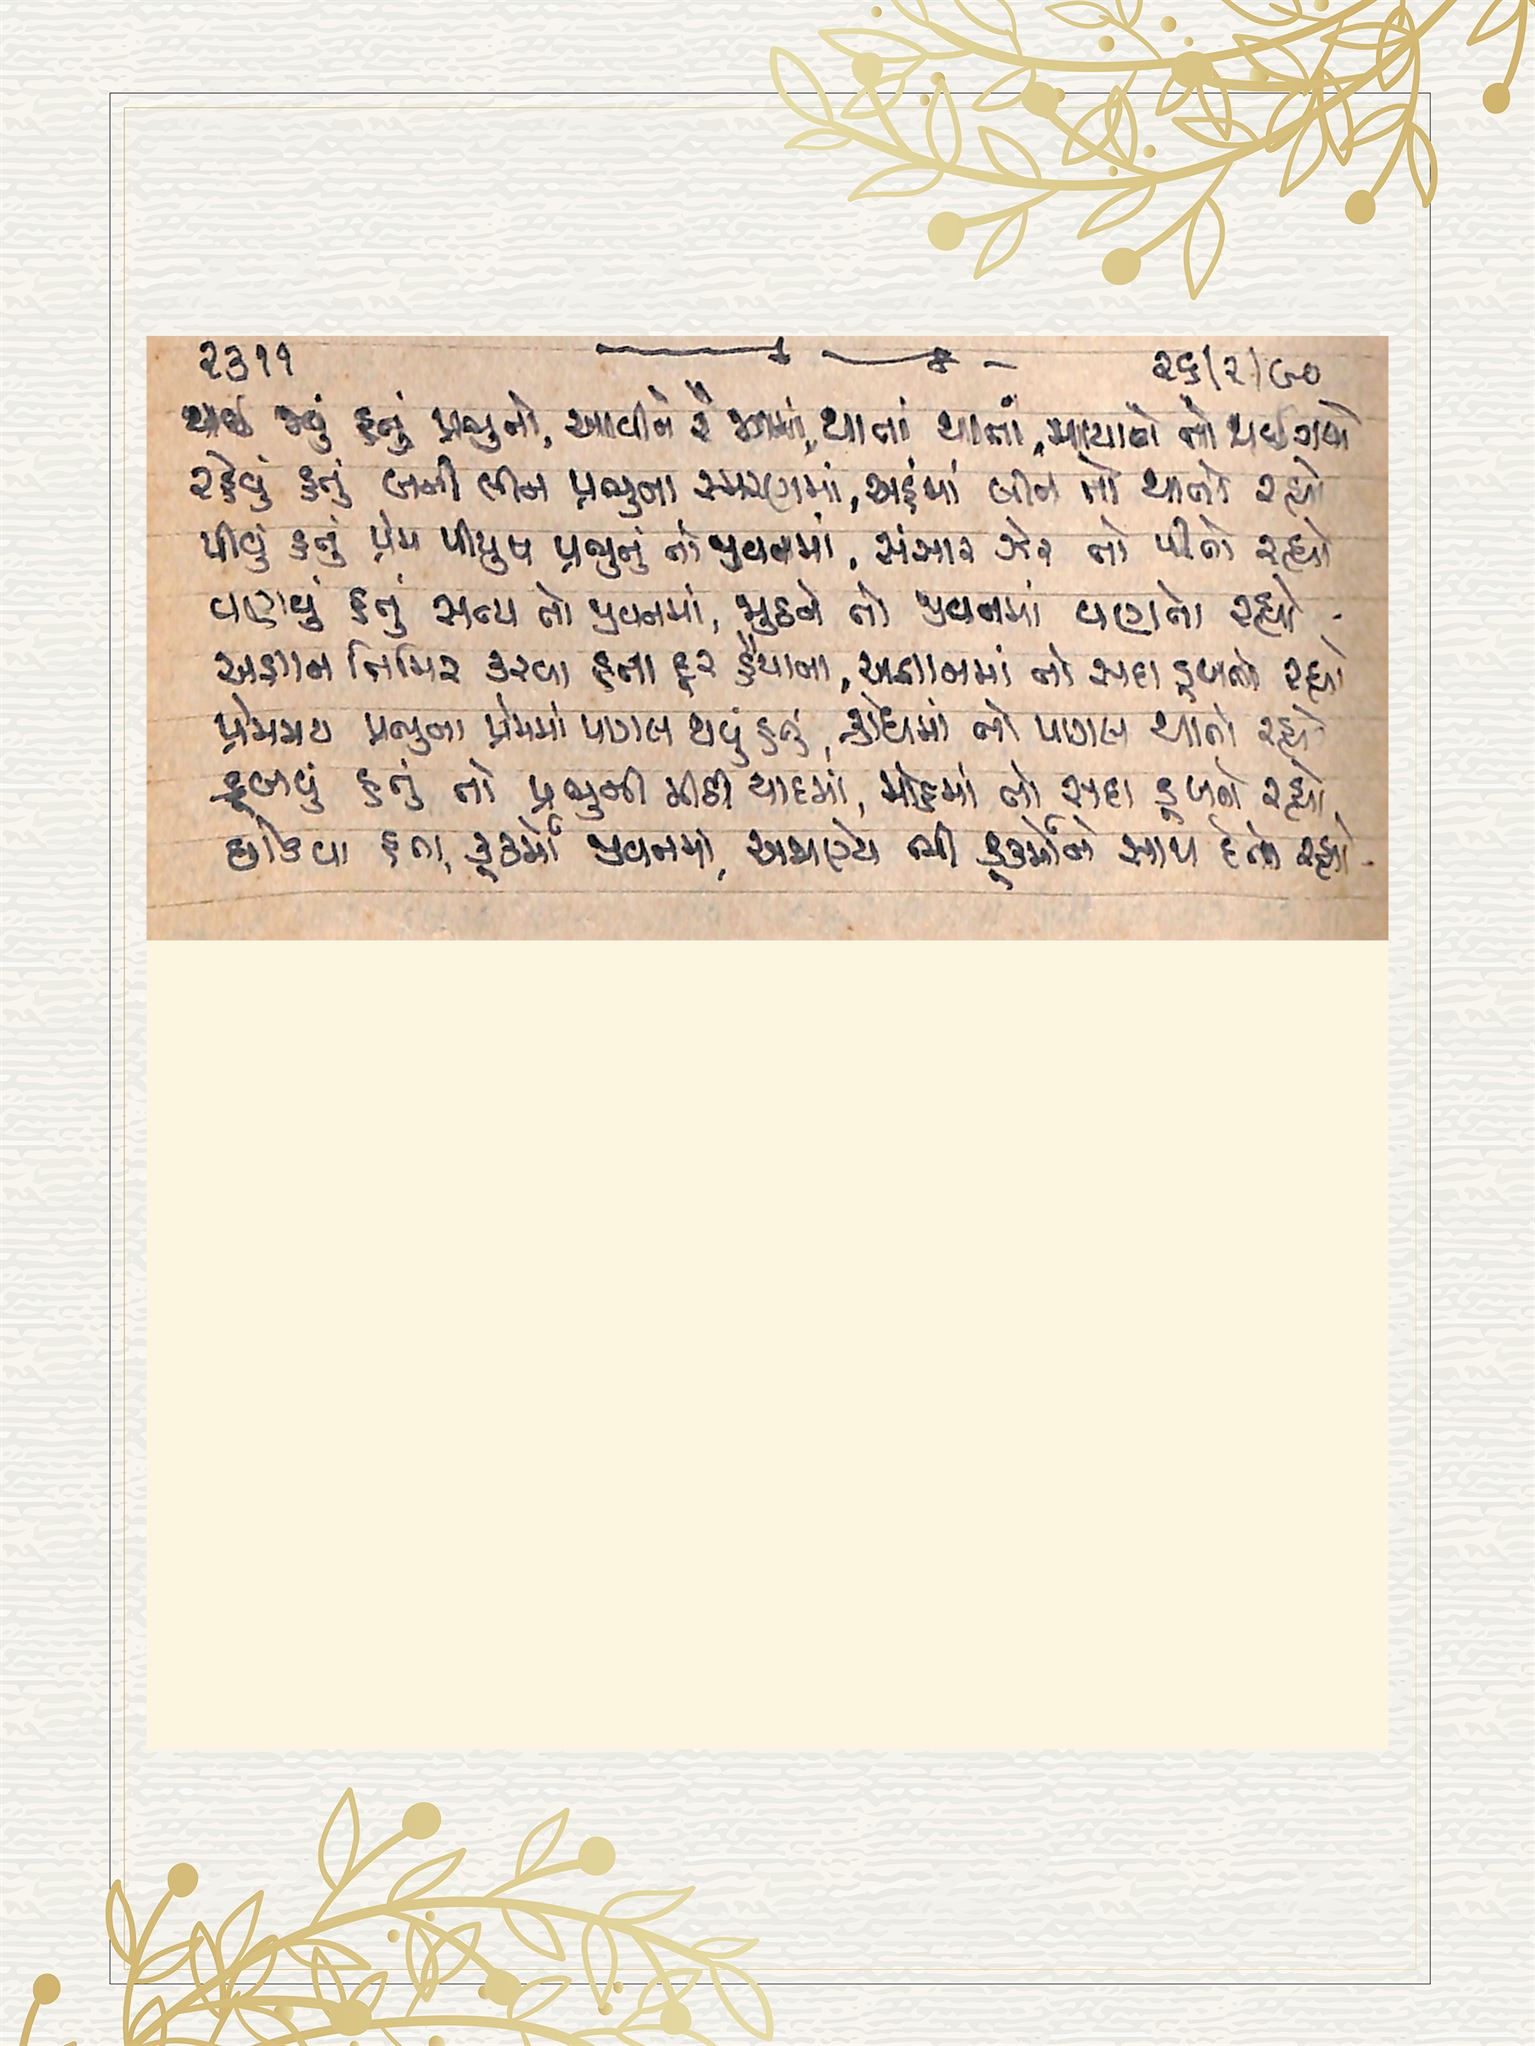 ૨૩૧૧ ૨૬/૨/૯૦
થઈ જવું હતું પ્રભુનો, આવીને રે જગમાં, થાતાં થાતાં, માયાનો તો થઈ ગયો
રહેવું હતું બની લીન પ્રભુના સ્મરણમાં, અહંમાં લીન તો થાતો રહ્યો
પીવું હતું પ્રેમ પીયુષ પ્રભુનું તો જીવનમાં, સંસાર ઝેર તો પીતો રહ્યો
વણવું હતું સત્ય તો જીવનમાં, જુઠને તો જીવનમાં વણતો રહ્યો
અજ્ઞાન તિમિર કરવા હતા દૂર હૈયાના, અજ્ઞાનમાં તો સદા ડૂબતો રહ્યો
પ્રેમમય પ્રભુના પ્રેમમાં પાગલ થવું હતું, ક્રોધમાં તો પાગલ થાતો રહ્યો
ડૂબવું હતું તો પ્રભુની મીઠી યાદમાં, મોહમાં તો સદા ડૂબતો રહ્યો
છોડવા હતા, કૂકર્મો જીવનમાં, અજાણ્યે ભી કૂકર્મોને સાથ દેતો રહ્યો